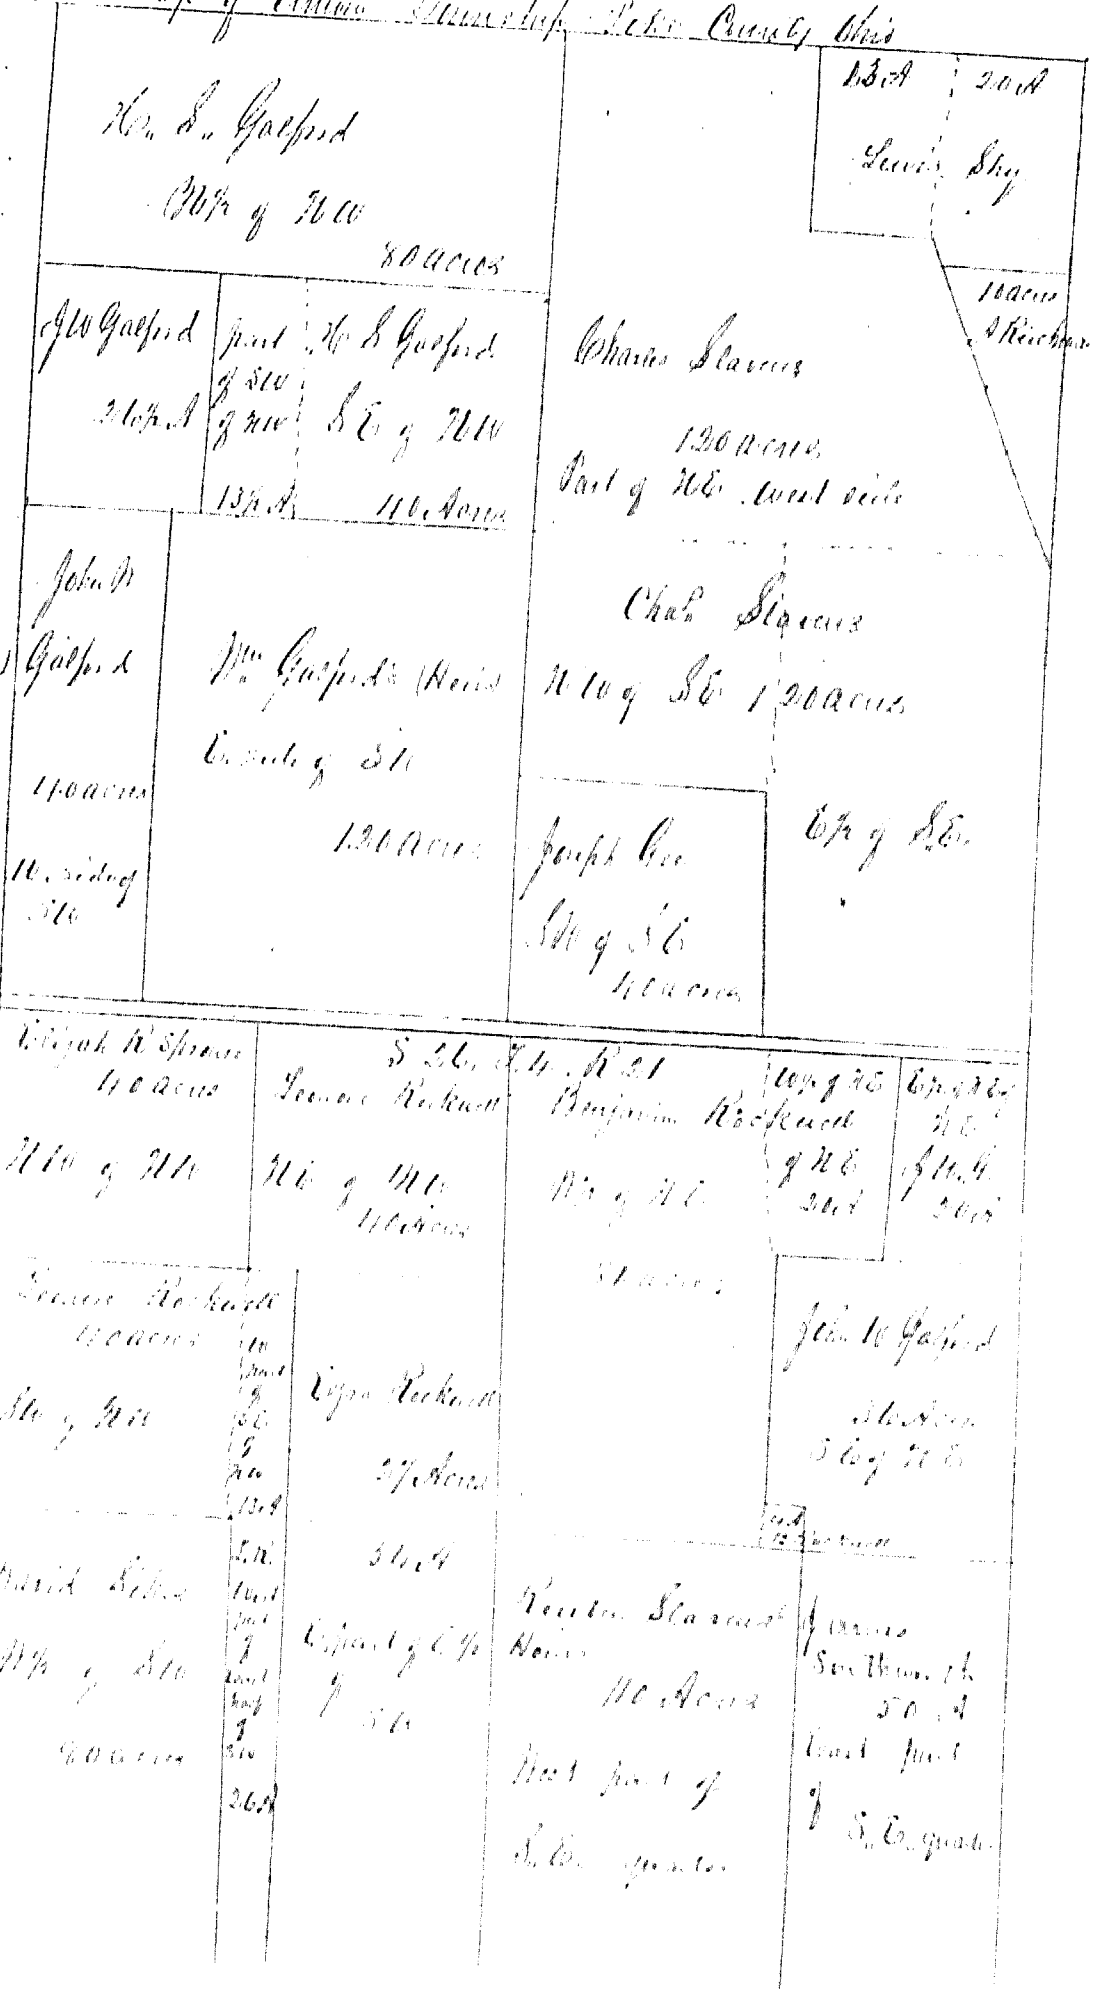 of Union Township Pike County Ohio
H. S. Galford
N½ of NW
80 acres
13 A
20 A
Lewis Shy
10 acres
J W Galford
26½ A
part
of SW
of NW
13½ A
H S Galford
SE of NW
40 Acres
Charles Slavens
120 acres
Part of NE West side
John
Galford
40 acres
W. side of
SW
Wm Galford's Heirs
E. side of SW
120 acres
Chas Slavens
NW of SE 120 acres
E½ of S.E.
Joseph Gee
SW of SE
40 acres
S 26. T 4. R 21
Elijah R
40 acres
NW of NW
Rockwell
NE of NW
40 Acres
Benjamin Rockwell
W½ of NE
80 acres
W½ of NE
of NE
20 A
NE
20 A
Rockwell
40 acres
SW of NW
W
part
of
SE
of
NW
13 A
Rockwell
27 Acres
John W Galford
36 Acres
SE of NE
David
W½ of SW
80 acres
West
part
of
east
half
of
SW
26 A
54 A
E. part of E ½
of
SW
Slavens
Heirs
110 Acres
West part of
S. E. quarter
James
Southworth
50 A
East part
of
S. E. quarter